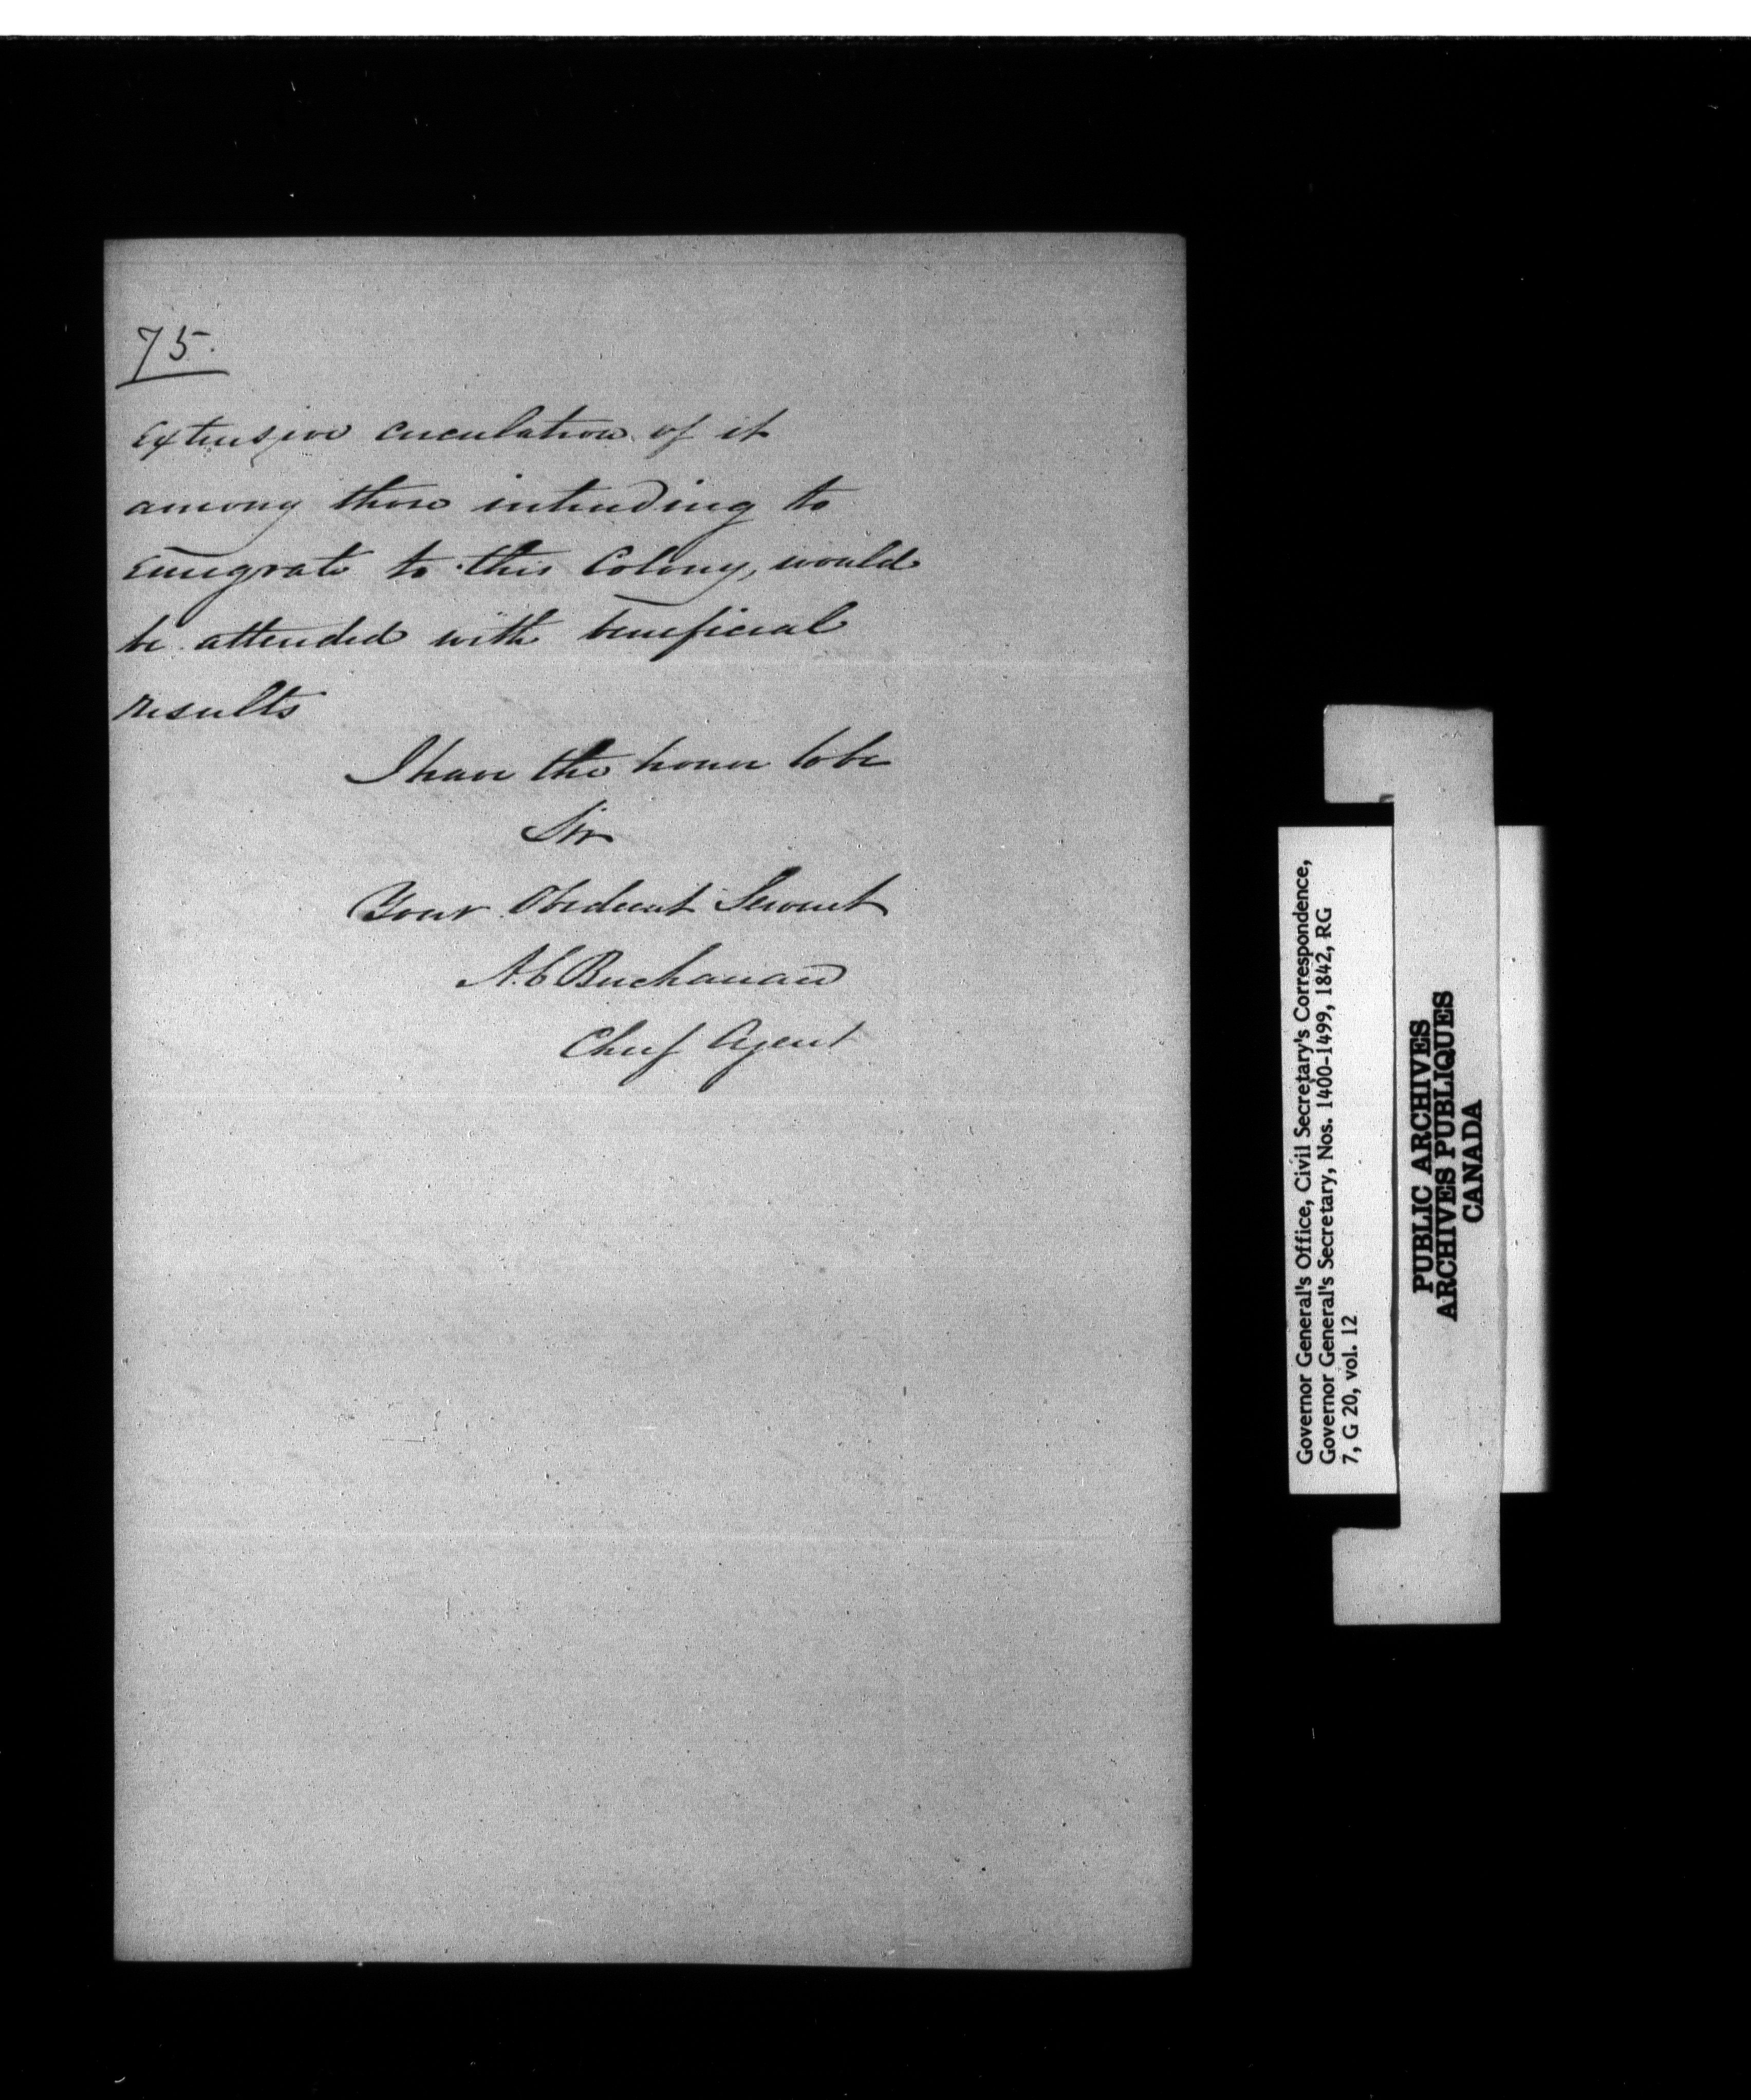 75.
extensive circulation of it
among those intending to
Emigrate to this Colony, would
be attended with beneficial
results
I have the honor to be
Sir
Your Obedient Servant
A.C Buchanan
Chief Agent
Governor General's Office, Civil Secretary's Correspondence,
Governor General's Secretary, Nos. 1400-1499, 1842, RG
7, G 20, vol. 12
PUBLIC ARCHIVES
ARCHIVES PUBLIQUES
CANADA